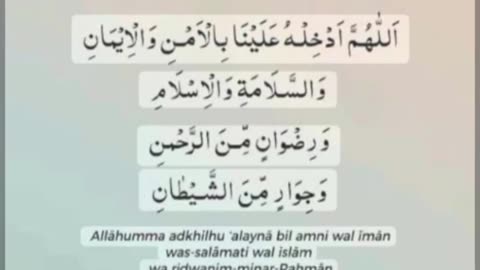 اَللّٰهُمَّ اَدْخِلْهُ عَلَيْنَا بِالْاَمْنِ وَالْاِيْمَانِ
وَالسَّلَامَةِ وَالْاِسْلَامِ
وَرِضْوَانٍ مِّنَ الرَّحْمٰنِ
وَجِوَارٍ مِّنَ الشَّيْطَانِ
Allāhumma adkhilhu ʿalaynā bil amni wal īmān
was-salāmati wal islām
wa ridwanim-minar-Rahmān